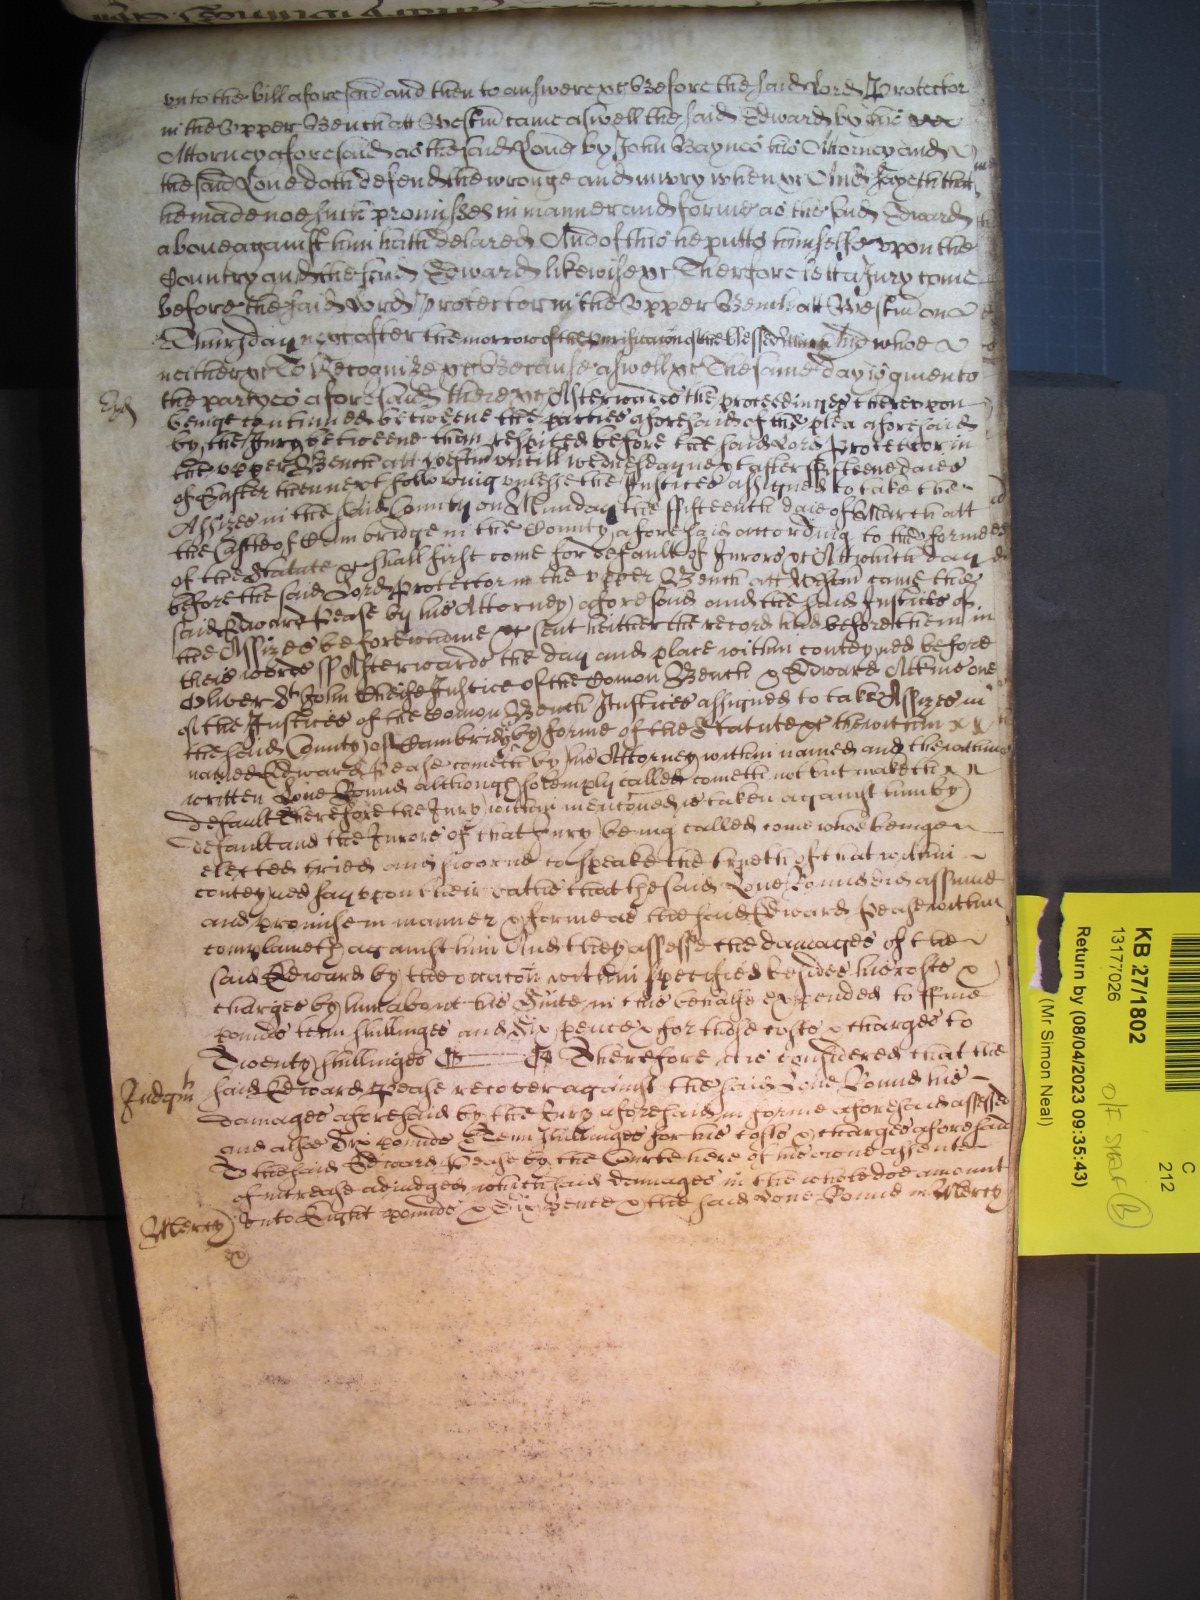 unto the bill aforesaid and then to answere &c Before the said Lord Protector
in the Upper Bench att Westm came aswell the said Edward by his
Attorney aforesaid as the said Lone by John Baynes his Attorney and
the said Lone doth defend the wronge and iniury when &c And sayeth that
he made noe such promisses in manner and forme as the said Edward
above against him hath declared And of this he putts himselfe upon the
Country and the said Edward likewise &c Therfore let a Jury come
before the said Lord Protector in the Upper Bench att Westm on
Thursday next after the morrow of the Purification of the blessed Mary And whoe
neither &c To Recognize &c Because aswell &c The same day is given to
the partyes aforesaid there &c Afterwards the proceedinges thereupon
beinge continued betweene the parties aforesaid of the plea aforesaid
by the Jury betweene them respited before the said Lord Protector in
the upper Bench att Westm untill wednesday next after ffifteene daies
of Easter then next following unlesse the Justices assigned to take the
Assizes in the said County on Munday the ffifteenth daie of March att
the Castle of Cambridge in the County aforesaid according to the forme
of the Statute &c shall first come for default of Jurors &c Att which day
before the said Lord Protector in the upper Bench att Westm came the
said Edward Pease by his Attorney aforesaid and the said Justices of
the Assizes before whome &c sent hether the record had before them in
theis words ss Afterwards the day and place within conteyned before
Oliver St John Cheife Justice of the Comon Bench & Edward Atkins one
of the Justices of the Comon Bench Justices assigned to take Assizes in
the said County of Cambridge by forme of the Statute &c the within
named Edward Pease cometh by his Attorney within named and the within
written Lone Pound although solemply called cometh not but maketh
default Therefore the Jury within mentoned is taken against him by
default and the Jurors of that Jury being called come whoe being
elected tried and sworne to speake the trueth of that within
conteyned say upon their oathes that the said Lone Pound did assume
and promise in manner & forme as the said Edward Pease within
complaineth against him And they assesse the damages of the
said Edward by the occacon within specified besides his costs &
charges by him about his Suite in this behalfe expended to ffive
pounds tenn shillinges and Six pence & for those costs & charges to
Twenty shillinges Therefore it is considered that the
Judgmt said Edward Pease recover against the said Lone Pound his
damages aforesaid by the Jury aforesaid in forme aforesaid assessed
and alsoe Six pounds Tenn shillinges for his costs & charges aforesaid
To the said Edward Pease by the Courte here of his owne assente
of increase adiudged which said damages in the whole doe amount
Mercy unto Eight pounds & Six pence & the said Lone Pound in Mercy
&c
KB 27/1802
13177/026
Return by (08/04/2023 09:35:43)
(Mr Simon Neal)
C
212